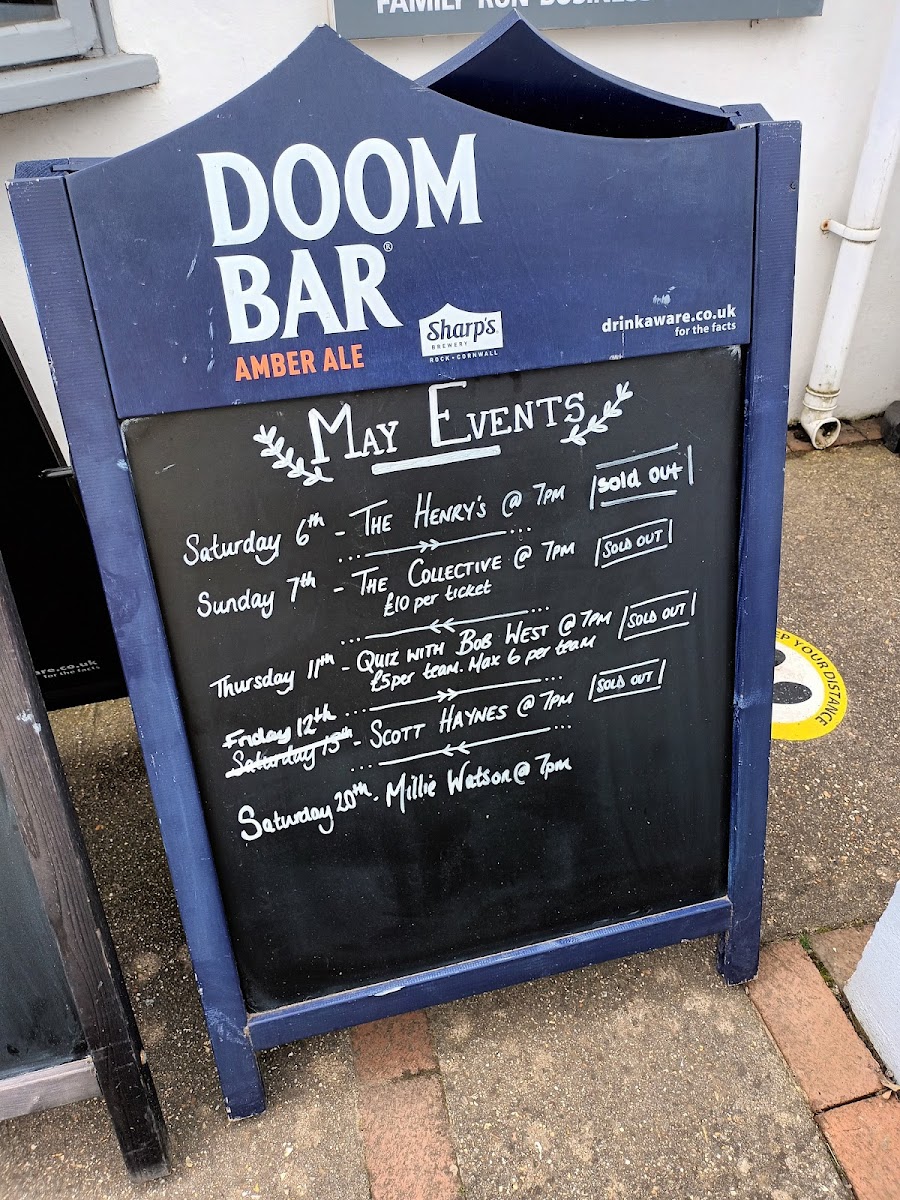 FAMILY RUN BUSINESS
DOOM
BAR®
AMBER ALE
Sharp's
BREWERY
ROCK • CORNWALL
drinkaware.co.uk
for the facts
MAY EVENTS
Saturday 6th - THE HENRY'S @ 7PM sold out
Sunday 7th - THE COLLECTIVE @ 7PM SOLD OUT
£10 per ticket
Thursday 11th - QUIZ WITH BOB WEST @ 7PM SOLD OUT
£5 per team. Max 6 per team
Friday 12th
Saturday 13th - SCOTT HAYNES @ 7PM SOLD OUT
Saturday 20th - Millie Watson @ 7pm
are.co.uk
for the facts
EP YOUR DISTANCE